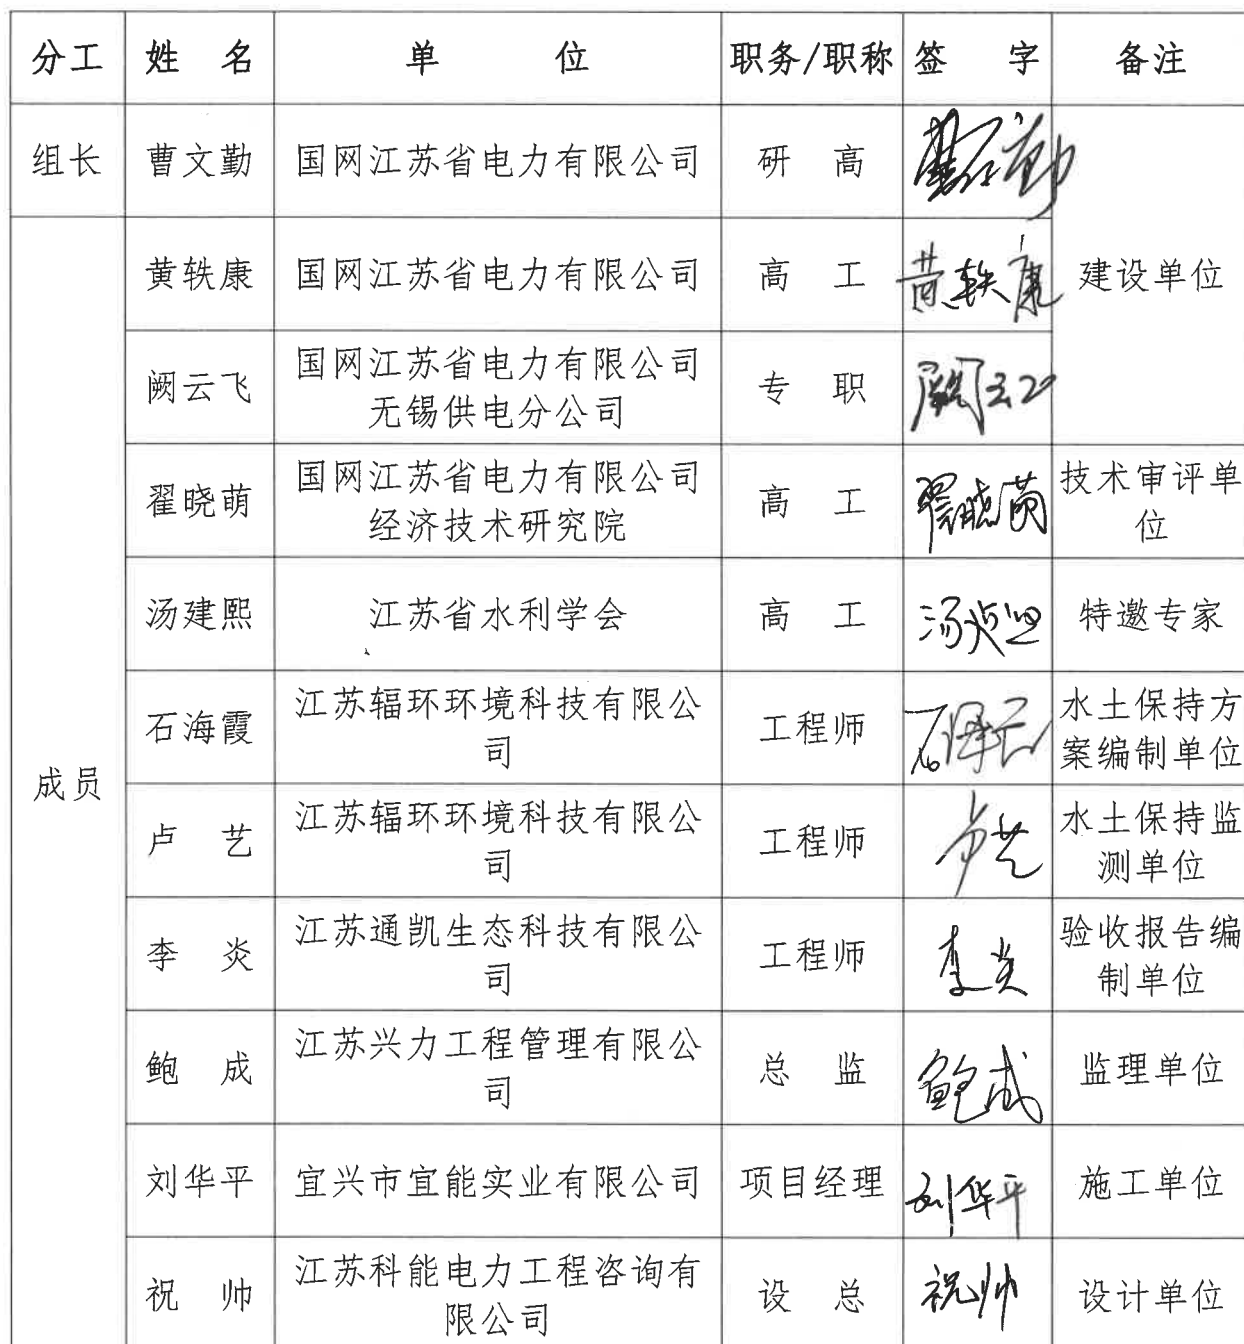 分工 姓 名 单 位 职务/职称 签 字 备注
组长 曹文勤 国网江苏省电力有限公司 研 高 曹文勤
黄轶康 国网江苏省电力有限公司 高 工 黄轶康 建设单位
阙云飞 国网江苏省电力有限公司
无锡供电分公司
专 职 阙云飞
翟晓萌 国网江苏省电力有限公司
经济技术研究院
高 工 翟晓萌 技术审评单
位
汤建熙 江苏省水利学会 高 工 汤建熙 特邀专家
成员
石海霞 江苏辐环环境科技有限公
司
工程师 石海霞 水土保持方
案编制单位
卢 艺 江苏辐环环境科技有限公
司
工程师 卢艺 水土保持监
测单位
李 炎 江苏通凯生态科技有限公
司
工程师 李炎 验收报告编
制单位
鲍 成 江苏兴力工程管理有限公
司
总 监 鲍成 监理单位
刘华平 宜兴市宜能实业有限公司 项目经理 刘华平 施工单位
祝 帅 江苏科能电力工程咨询有
限公司
设 总 祝帅 设计单位